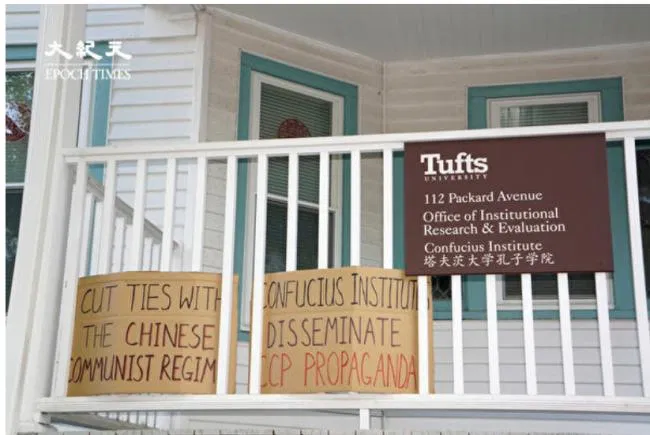 大紀元
EPOCH TIMES
Tufts
UNIVERSITY
112 Packard Avenue
Office of Institutional
Research & Evaluation
Confucius Institute
塔夫茨大学孔子学院
CUT TIES WITH
THE CHINESE
COMMUNIST REGIM
CONFUCIUS INSTITUT
DISSEMINATE
CCP PROPAGANDA